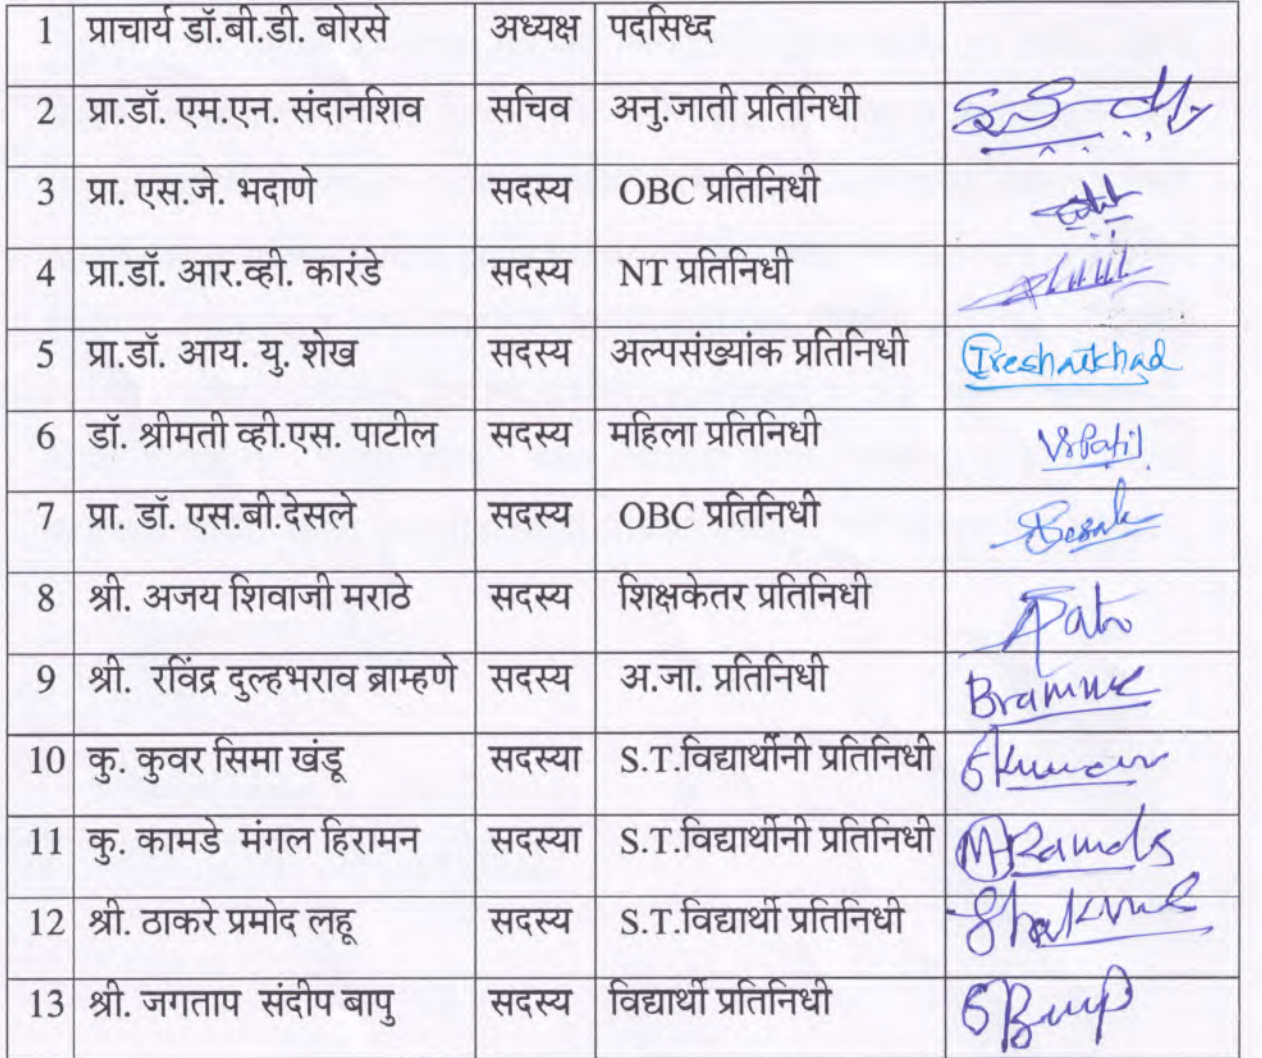 1 प्राचार्य डॉ.बी.डी. बोरसे अध्यक्ष पदसिध्द
2 प्रा.डॉ. एम.एन. संदानशिव सचिव अनु.जाती प्रतिनिधी
3 प्रा. एस.जे. भदाणे सदस्य OBC प्रतिनिधी
4 प्रा.डॉ. आर.व्ही. कारंडे सदस्य NT प्रतिनिधी
5 प्रा.डॉ. आय. यु. शेख सदस्य अल्पसंख्यांक प्रतिनिधी
6 डॉ. श्रीमती व्ही.एस. पाटील सदस्य महिला प्रतिनिधी VSPatil
7 प्रा. डॉ. एस.बी.देसले सदस्य OBC प्रतिनिधी
8 श्री. अजय शिवाजी मराठे सदस्य शिक्षकेतर प्रतिनिधी
9 श्री. रविंद्र दुल्हभराव ब्राम्हणे सदस्य अ.जा. प्रतिनिधी
10 कु. कुवर सिमा खंडू सदस्या S.T.विद्यार्थीनी प्रतिनिधी
11 कु. कामडे मंगल हिरामन सदस्या S.T.विद्यार्थीनी प्रतिनिधी
12 श्री. ठाकरे प्रमोद लहू सदस्य S.T.विद्यार्थी प्रतिनिधी
13 श्री. जगताप संदीप बापु सदस्य विद्यार्थी प्रतिनिधी